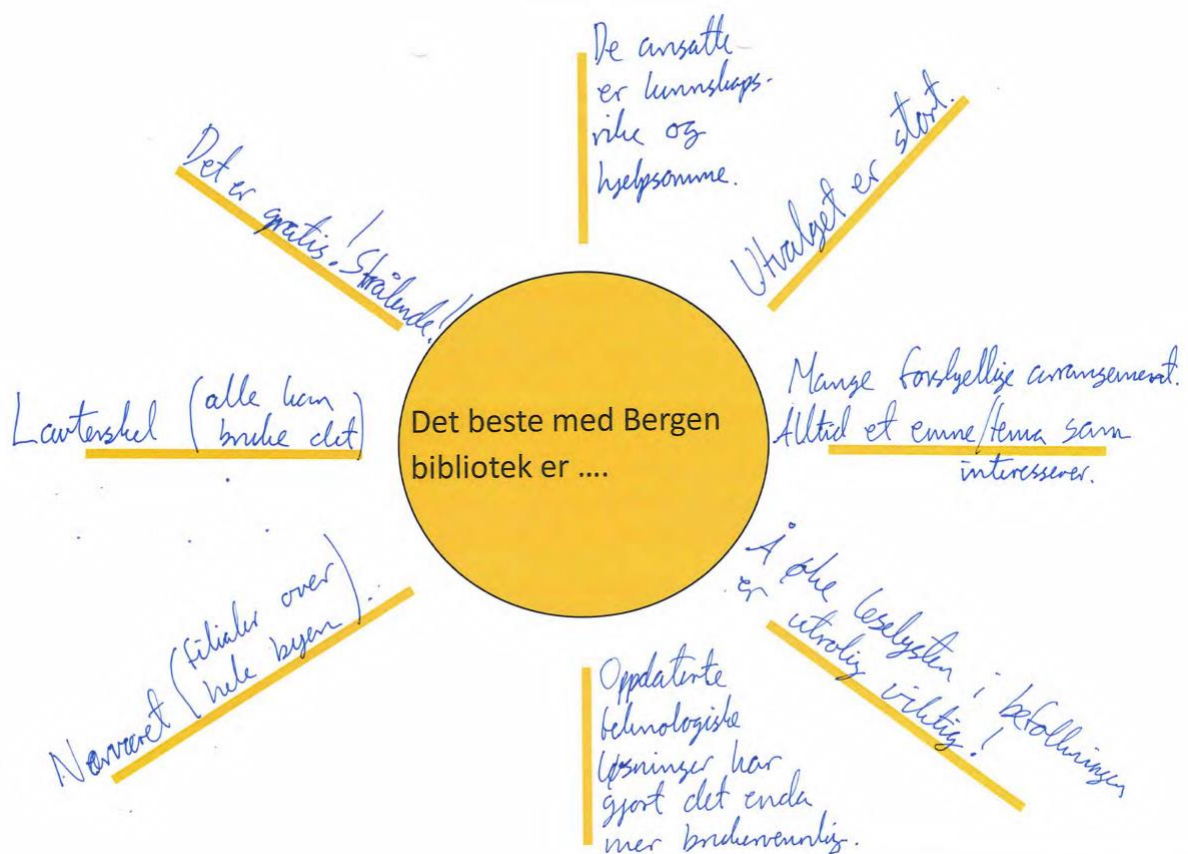 De ansatte
er kunnskaps-
rike og
hjelpsomme.
Utvalget er stort.
Mange forskjellige arrangement.
Alltid et emne/tema som
interesserer.
Å øke leselysten i befolkningen
er utrolig viktig!
Oppdaterte
teknologiske
løsninger har
gjort det enda
mer brukervennlig.
Nærværet (filialer over
hele byen).
Lavterskel (alle kan
bruke det)
Det er
gratis! Strålende!
Det beste med Bergen
bibliotek er ....